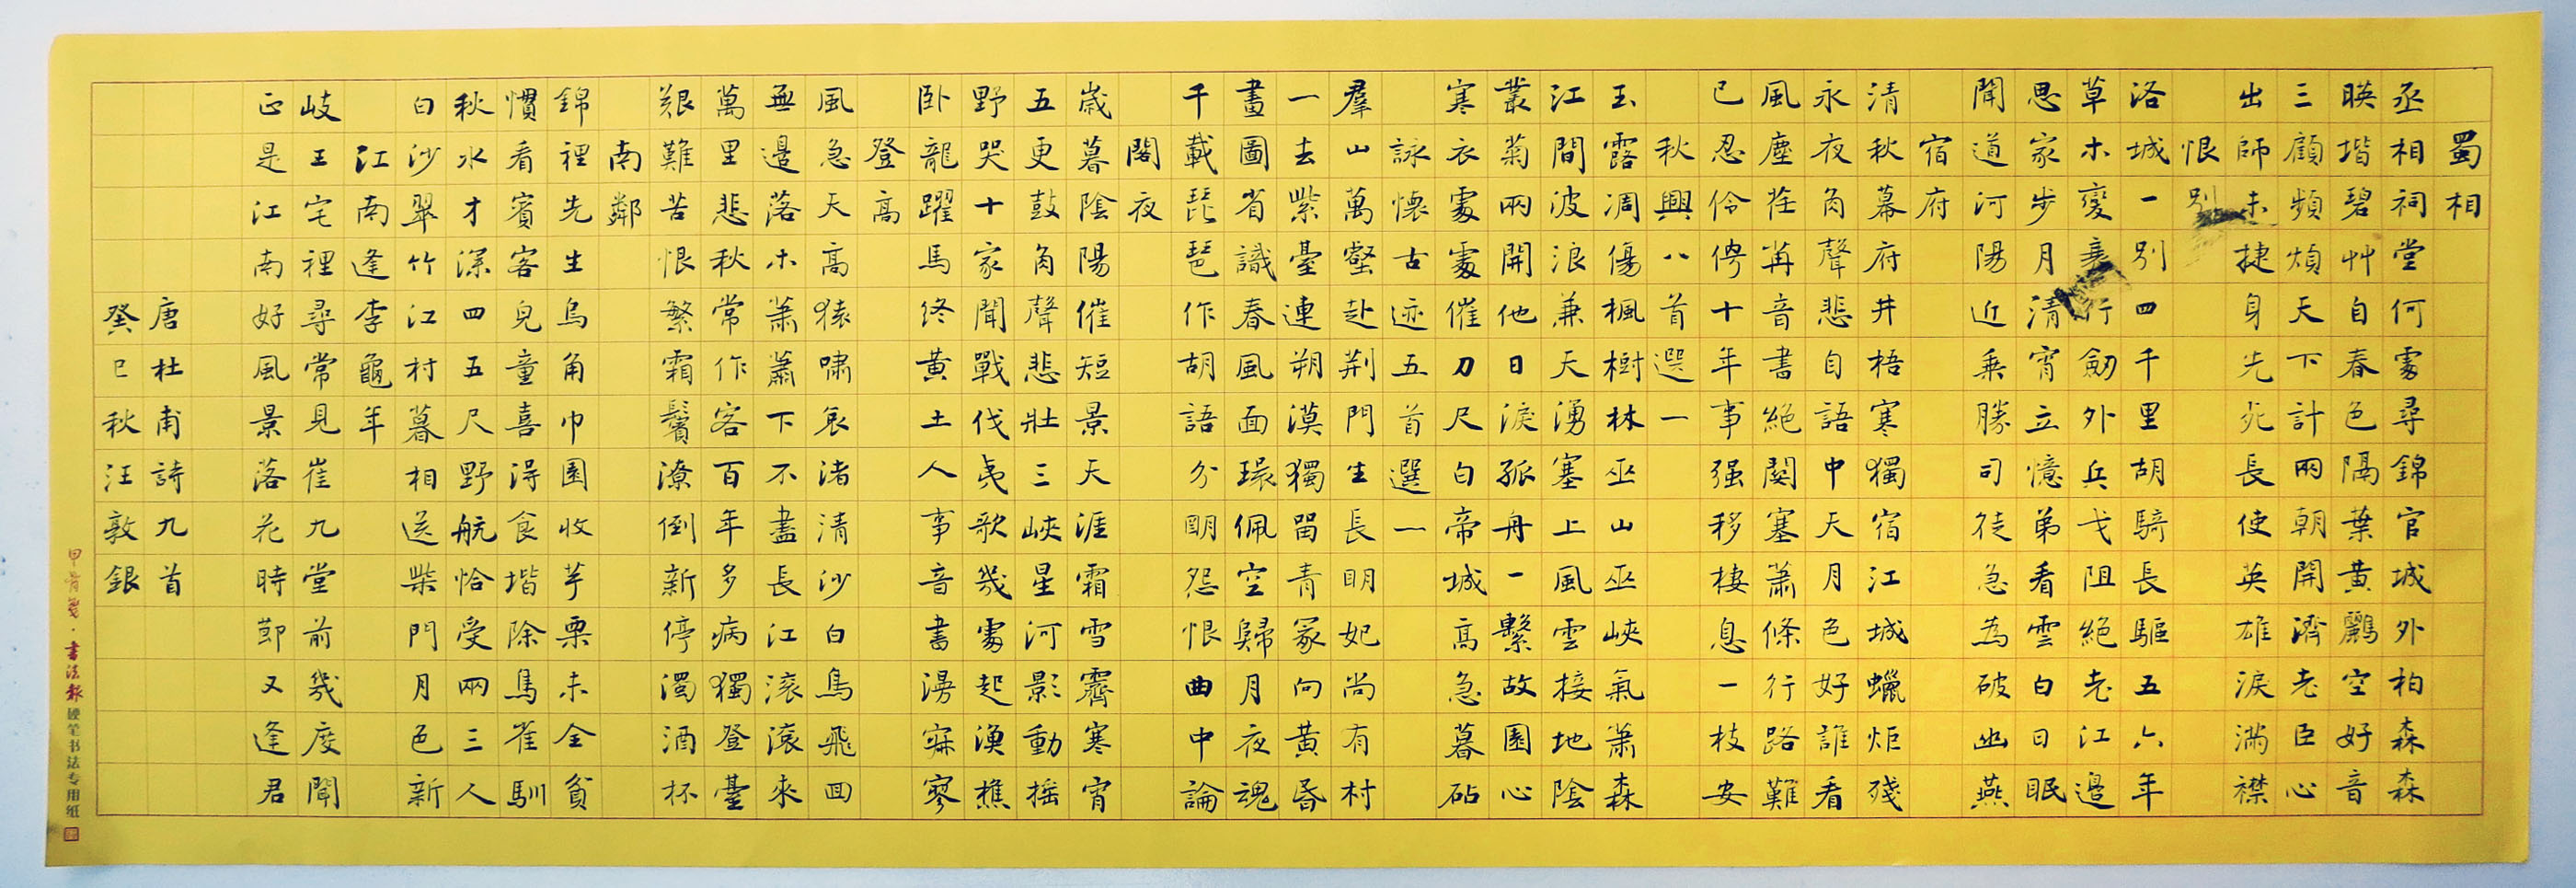 蜀相
丞相祠堂何處尋錦官城外柏森森
暎堦碧艸自春色隔葉黃鸝空好音
三顧頻煩天下計兩朝開濟老臣心
出師未捷身先死長使英雄淚滿襟
恨別
洛城一別四千里胡騎長驅五六年
草木變衰行劒外兵戈阻絕老江邊
思家步月清宵立憶弟看雲白日眠
聞道河陽近乘勝司徒急為破幽燕
宿府
清秋幕府井梧寒獨宿江城蠟炬殘
永夜角聲悲自語中天月色好誰看
風塵荏苒音書絕關塞蕭條行路難
已忍伶俜十年事强移棲息一枝安
秋興八首選一
玉露凋傷楓樹林巫山巫峽氣蕭森
江間波浪兼天湧塞上風雲接地陰
叢菊兩開他日淚孤舟一繫故園心
寒衣處處催刀尺白帝城高急暮砧
詠懷古迹五首選一
羣山萬壑赴荊門生長明妃尚有村
一去紫臺連朔漠獨留青冢向黃昏
畫圖省識春風面環佩空歸月夜魂
千載琵琶作胡語分明怨恨曲中論
閣夜
歲暮陰陽催短景天涯霜雪霽寒宵
五更鼓角聲悲壯三峽星河影動搖
野哭十家聞戰伐夷歌幾處起漁樵
臥龍躍馬終黃土人事音書漫寂寥
登高
風急天高猿嘯哀渚清沙白鳥飛囬
無邊落木蕭蕭下不盡長江滚滚來
萬里悲秋常作客百年多病獨登臺
艱難苦恨繁霜鬢潦倒新停濁酒杯
南鄰
錦裡先生烏角巾園收芋栗未全貧
慣看賓客兒童喜淂食堦除鳥雀馴
秋水才深四五尺野航恰受兩三人
白沙翠竹江村暮相送柴門月色新
江南逢李龜年
岐王宅裡尋常見崔九堂前幾度聞
正是江南好風景落花時節又逢君
唐杜甫詩九首
癸巳秋汪敦銀
甲骨箋·書法報硬笔书法专用纸